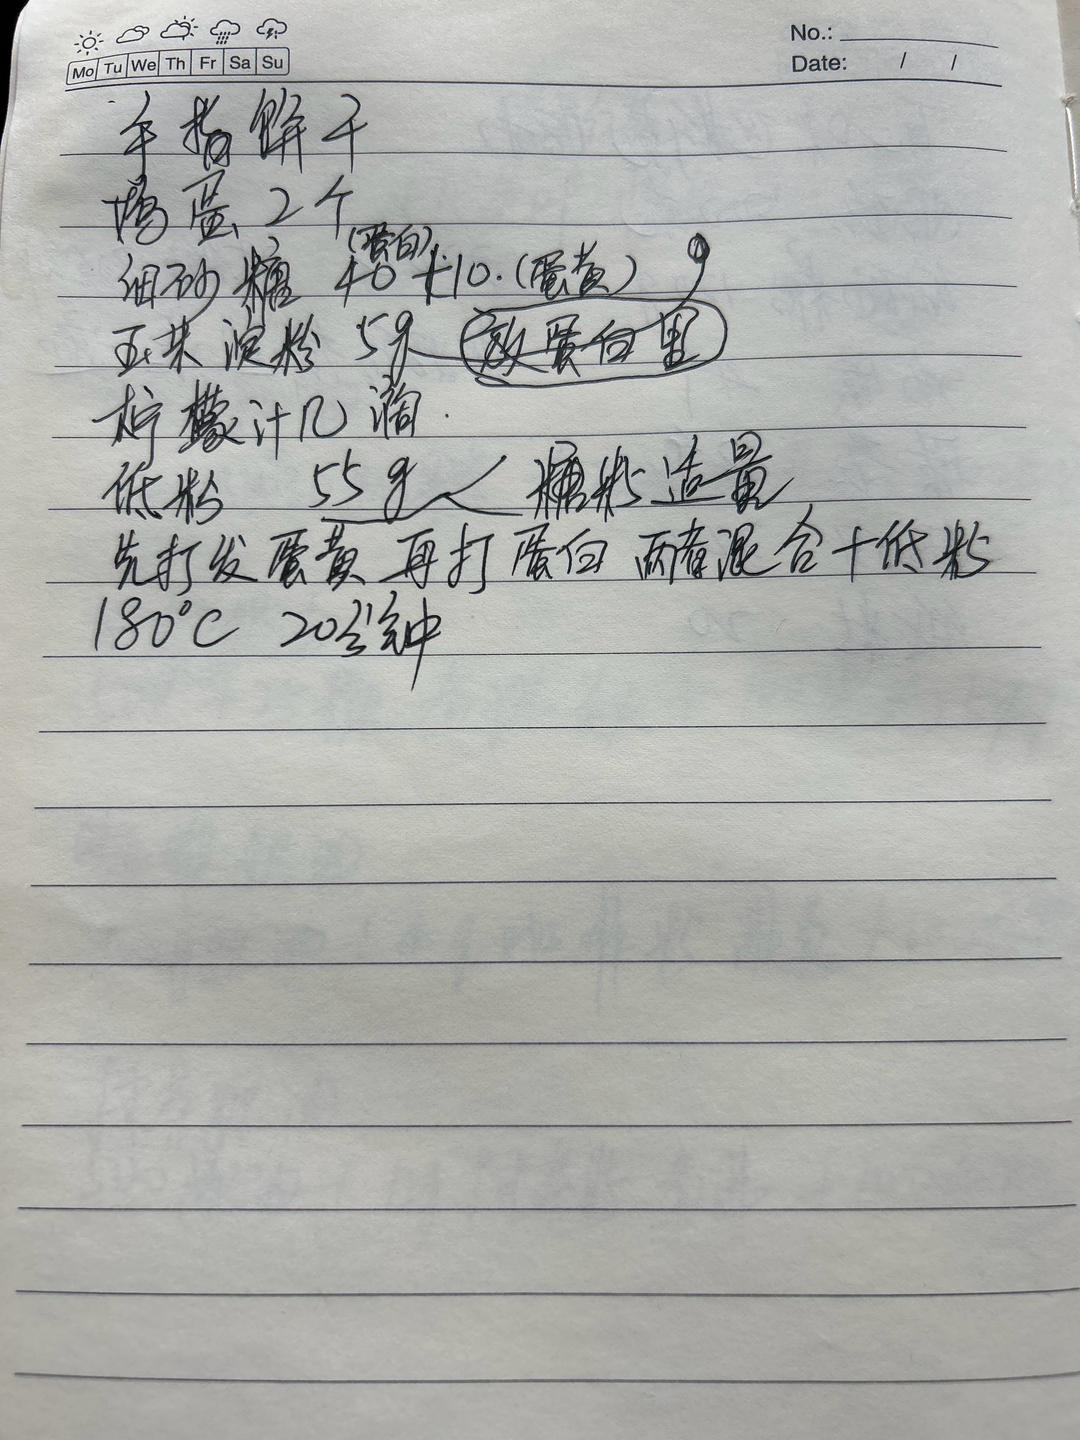 Mo Tu We Th Fr Sa Su
No.:
Date: / /
手指饼干
鸡蛋2个
细砂糖 40(蛋白)+10.(蛋黄) g
玉米淀粉 5g 放蛋白里
柠檬汁几滴.
低粉 55g 糖粉适量
先打发蛋黄 再打蛋白 两者混合+低粉
180°C 20分钟